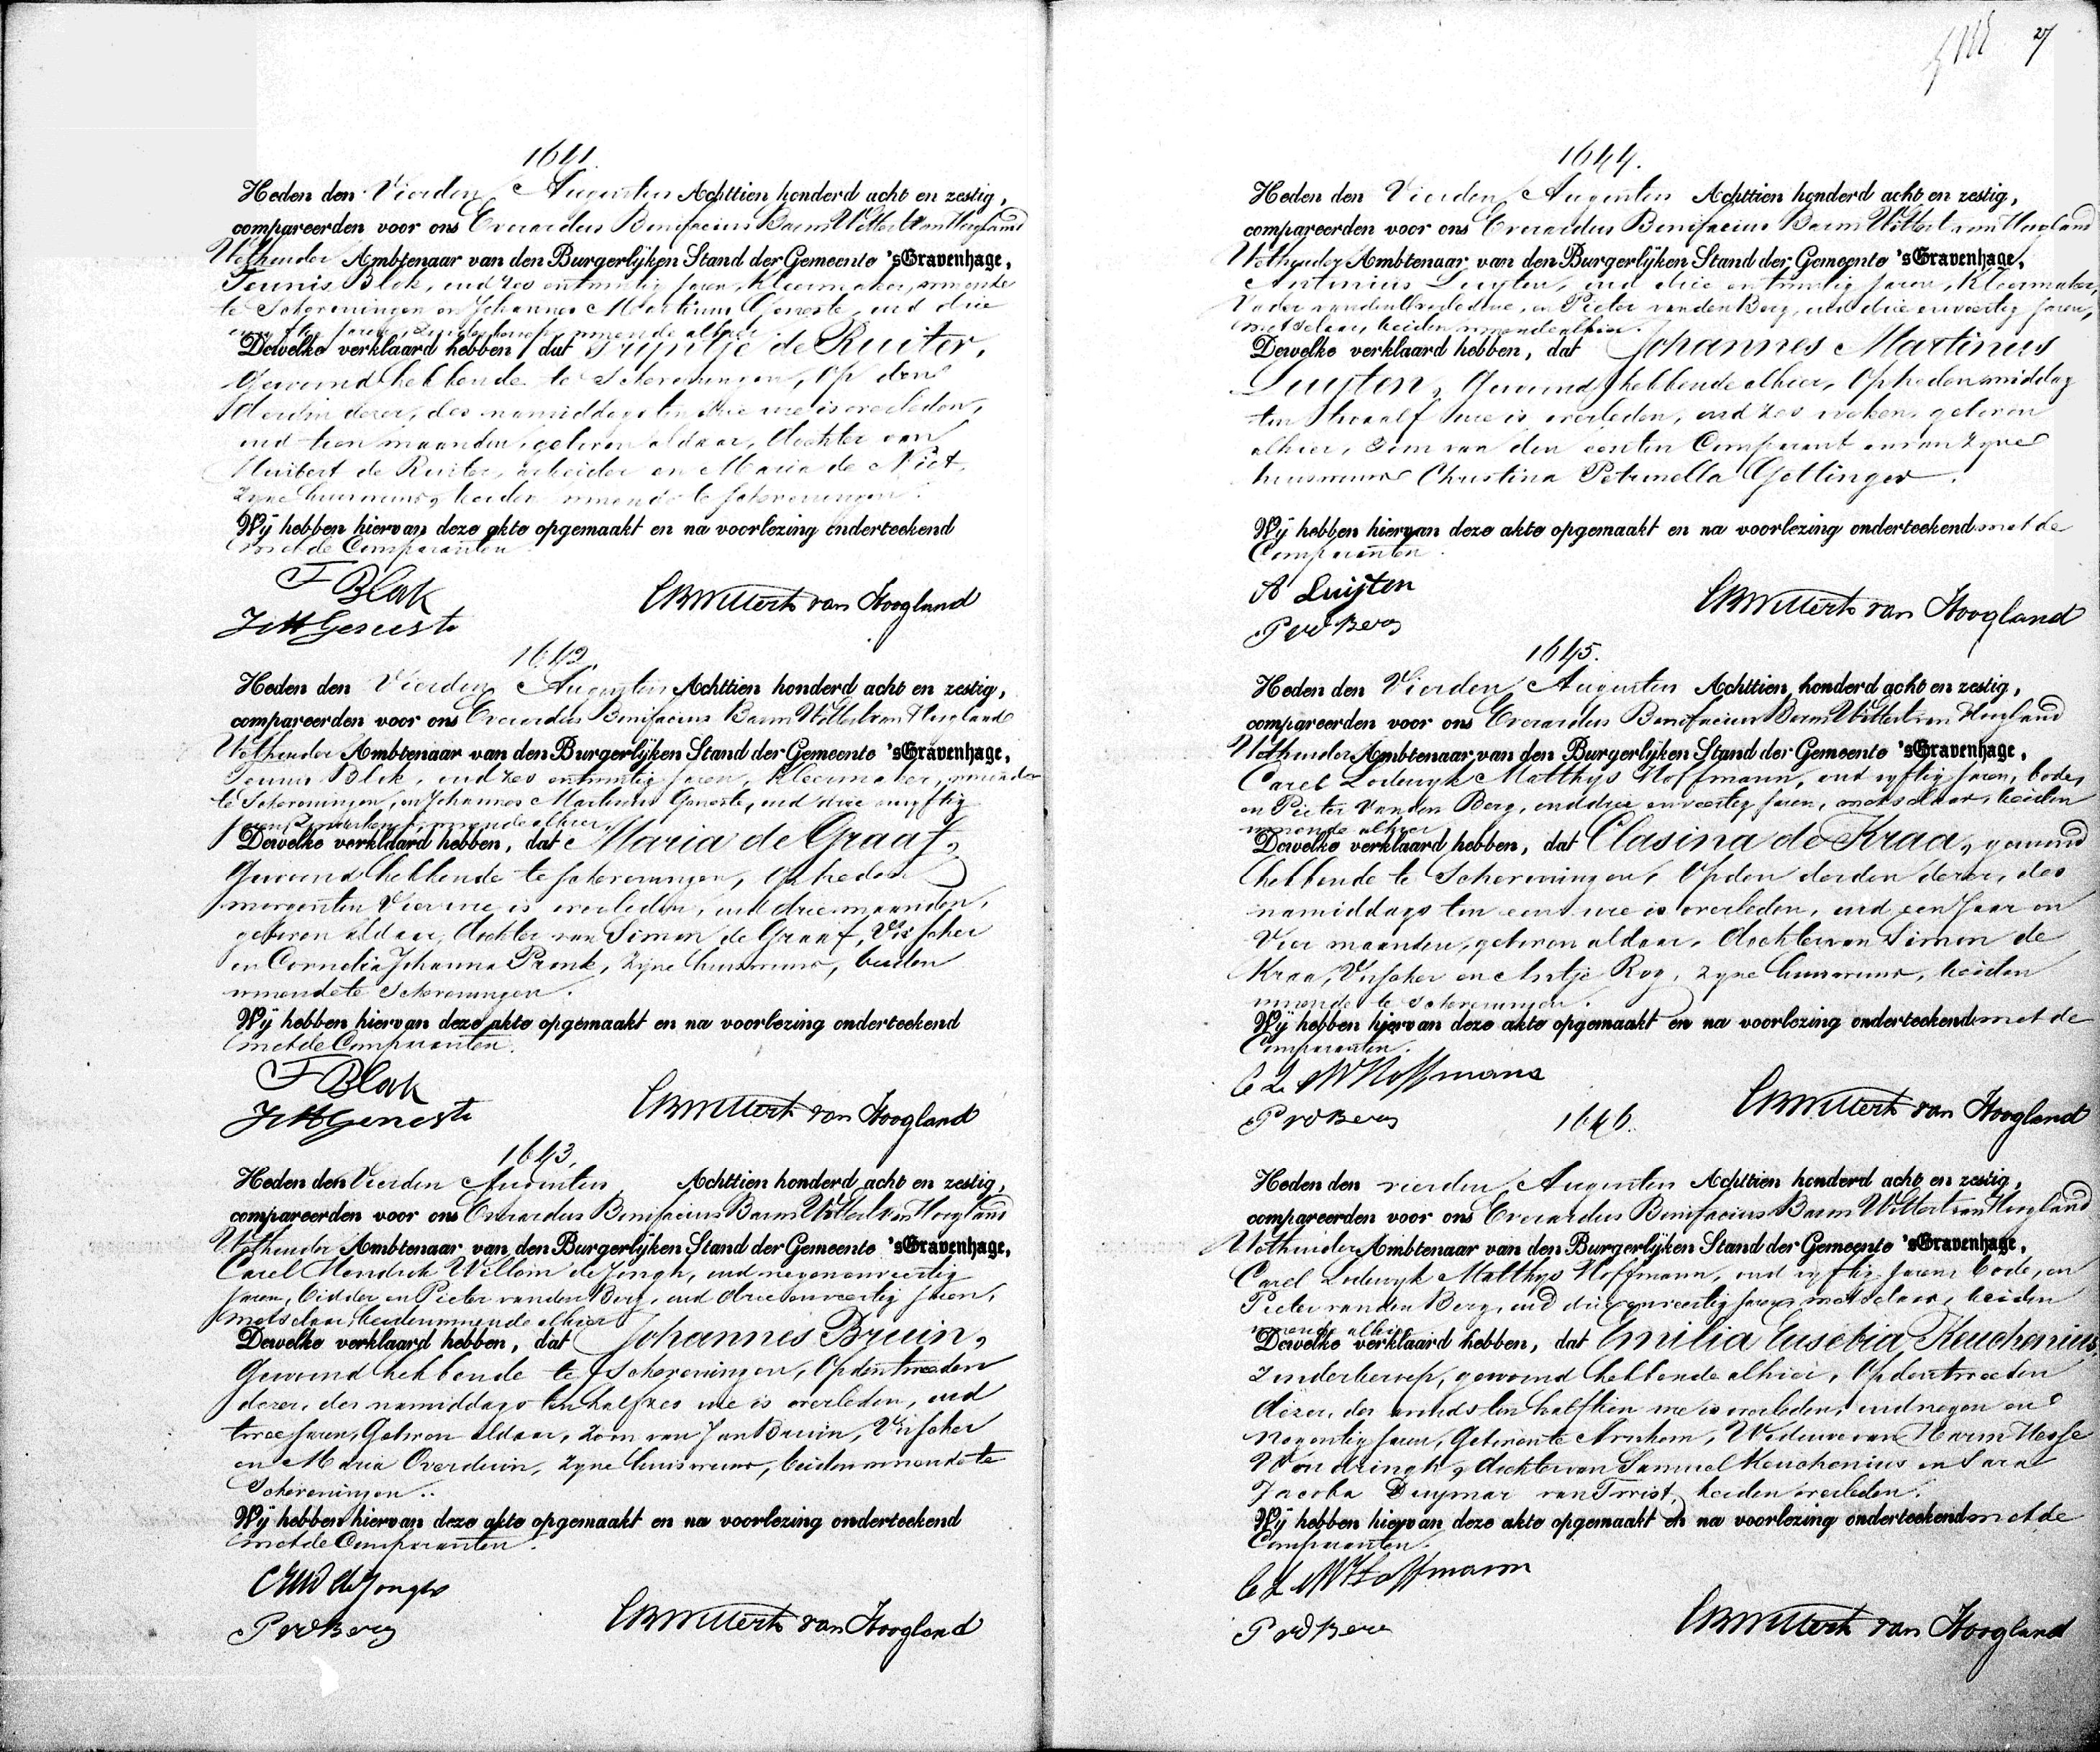 1641.
Heden den Vierden Augustus Achttien honderd acht en zestig,
compareerden voor ons Everardus Bonifacius Baron Wittert van Hoogland
Wethouder Ambtenaar van den Burgerlijken Stand der Gemeente 'sGravenhage,
Teunis Blok, oud zes en twintig jaren, Kleermaker, wonende
te Scheveningen en Johannes Martinus Geneste, oud drie
en vyftig jaren, zonder beroep, wonende alhier.
Dewelke verklaard hebben, dat Trijntje de Ruiter,
Gewoond hebbende te Scheveningen, op den
derden dezer, des namiddags ten drie ure is overleden,
oud tien maanden, geboren aldaar, dochter van
Huibert de Ruiter, arbeider en Maria de Niet,
zyne huisvrouw, beiden wonende te Scheveningen.
Wij hebben hiervan deze akte opgemaakt en na voorlezing onderteekend
met de Comparanten.
T Blok
J M Geneste
EBBWittert van Hoogland
1642.
Heden den Vierden Augustus Achttien honderd acht en zestig,
compareerden voor ons Everardus Bonifacius Baron Wittert van Hoogland
Wethouder Ambtenaar van den Burgerlijken Stand der Gemeente 'sGravenhage,
Teunis Blok, oud zes en twintig jaren, Kleermaker, wonende
te Scheveningen, en Johannes Martinus Geneste, oud drie en vyftig
jaren, zonder beroep, wonende alhier.
Dewelke verklaard hebben, dat Maria de Graaf,
Gewoond hebbende te Scheveningen, op heden
morgen ten Vier ure is overleden, oud drie maanden,
geboren aldaar, dochter van Simon de Graaf, Visscher
en Cornelia Johanna Pronk, zyne huisvrouw, beiden
wonende te Scheveningen.
Wij hebben hiervan deze akte opgemaakt en na voorlezing onderteekend
met de Comparanten.
T Blok
J M Geneste
EBBWittert van Hoogland
1643.
Heden den Vierden Augustus Achttien honderd acht en zestig,
compareerden voor ons Everardus Bonifacius Baron Wittert van Hoogland
Wethouder Ambtenaar van den Burgerlijken Stand der Gemeente 'sGravenhage,
Carel Hendrik Willem de Jongh, oud negen en veertig
jaren, bidder en Pieter van den Berg, oud drie en veertig jaren,
metselaar, beiden wonende alhier
Dewelke verklaard hebben, dat Johannes Bruin,
Gewoond hebbende te Scheveningen, op den tweeden
dezer, des namiddags ten half zes ure is overleden, oud
twee jaren, Geboren aldaar, zoon van Jan Bruin, Visscher
en Maria Overduin, zyne huisvrouw, beiden wonende te
Scheveningen.
Wij hebben hiervan deze akte opgemaakt en na voorlezing onderteekend
met de Comparanten.
CHW de Jongh
P vd Berg
EBBWittert van Hoogland
27
1644.
Heden den Vierden Augustus Achttien honderd acht en zestig,
compareerden voor ons Everardus Bonifacius Baron Wittert van Hoogland
Wethouder Ambtenaar van den Burgerlijken Stand der Gemeente 'sGravenhage,
Antonius Luijten, oud drie en twintig jaren, Kleermaker,
Vader van den Overledene, en Pieter van den Berg, oud drie en veertig jaren,
metselaar, beiden wonende alhier.
Dewelke verklaard hebben, dat Johannes Martinus
Luijten, Gewoond hebbende alhier, Op heden middag
ten twaalf ure is overleden, oud zes weken, geboren
alhier, zoon van den eersten Comparant en van zyne
huisvrouw Christina Petronella Gottinger.
Wij hebben hiervan deze akte opgemaakt en na voorlezing onderteekend met de
Comparanten.
A Luijten
P vd Berg
EBBWittert van Hoogland
1645.
Heden den Vierden Augustus Achttien honderd acht en zestig,
compareerden voor ons Everardus Bonifacius Baron Wittert van Hoogland
Wethouder Ambtenaar van den Burgerlijken Stand der Gemeente 'sGravenhage,
Carel Lodewyk Matthys Hoffmann, oud vyftig jaren, bode,
en Pieter van den Berg, oud drie en veertig jaren, metselaar, beiden
wonende alhier
Dewelke verklaard hebben, dat Clasina de Kraa, gewoond
hebbende te Scheveningen, Op den derden dezer, des
namiddags ten een ure is overleden, oud een jaar en
Vier maanden, geboren aldaar, dochter van Simon de
Kraa, Visscher en Antje Rog, zyne huisvrouw, beiden
wonende te Scheveningen.
Wij hebben hiervan deze akte opgemaakt en na voorlezing onderteekend met de
Comparanten.
C L M Hoffmann
P vd Berg
EBBWittert van Hoogland
1646.
Heden den vierden Augustus Achttien honderd acht en zestig,
compareerden voor ons Everardus Bonifacius Baron Wittert van Hoogland
Wethouder Ambtenaar van den Burgerlijken Stand der Gemeente 'sGravenhage,
Carel Lodewyk Matthys Hoffmann, oud vyftig jaren, bode, en
Pieter van den Berg, oud drie en veertig jaren, metselaar, beiden
wonende alhier
Dewelke verklaard hebben, dat Emilia Eusebia Keuchenius,
Zonder beroep, gewoond hebbende alhier, Op den tweeden
dezer, des avonds ten half tien ure is overleden, oud negen en
negentig jaren, Geboren te Arnhem, Weduwe van Harm Hesse
dochter van Samuel Keuchenius en Sara
Jacoba Duymaer van Twist, beiden overleden.
Wij hebben hiervan deze akte opgemaakt en na voorlezing onderteekend met de
Comparanten.
C L M Hoffmann
P vd Berg
EBBWittert van Hoogland